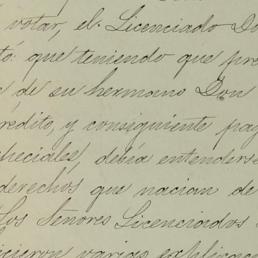 votar, el Licenciado Do
tó: que teniendo que pre
de su hermano Don
rédito, y consiguiente pag
peciales, debía entenderse
derechos que nacian de
Los Señores Licenciados
icieron varias explicac